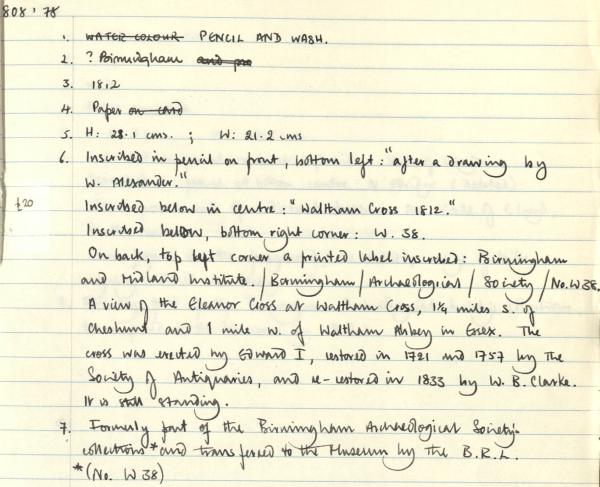 808'78
1. WATER COLOUR PENCIL AND WASH.
2. ? Birmingham and pr
3. 1812
4. Paper on card
5. H: 28.1 cms. ; W: 21.2 cms
6. Inscribed in pencil on front, bottom left: "after a drawing by
W. Alexander."
£20
Inscribed below in centre: "Waltham Cross 1812."
Inscribed below, bottom right corner: W. 38.
On back, top left corner a printed label inscribed: Birmingham
and Midland Institute. / Birmingham / Archaeological / Society / No. W 38.
A view of the Eleanor Cross at Waltham Cross, 1¼ miles S. of
Cheshunt and 1 mile W. of Waltham Abbey in Essex. The
cross was erected by Edward I, restored in 1721 and 1757 by the
Society of Antiquaries, and re-restored in 1833 by W. B. Clarke.
It is still standing.
7. Formerly part of the Birmingham Archaeological Society
collections * and transferred to the Museum by the B.R.L.
* (No. W 38)